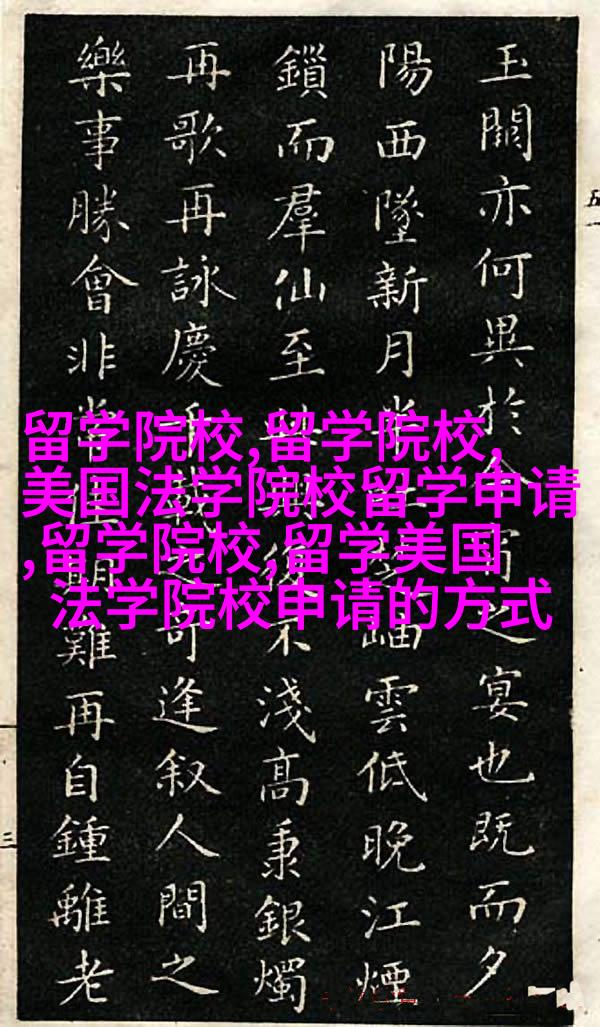 玉闕亦何異於今宵之宴也既而夕
陽西墜新月岫雲低晚江煙
鎖而羣仙至不淺高秉銀燭
再歌再詠慶千載之奇逢叙人間之
樂事勝會非常佳期難再自鍾離老
留学院校,留学院校,
美国法学院校留学申请
,留学院校,留学美国
法学院校申请的方式
五一
三